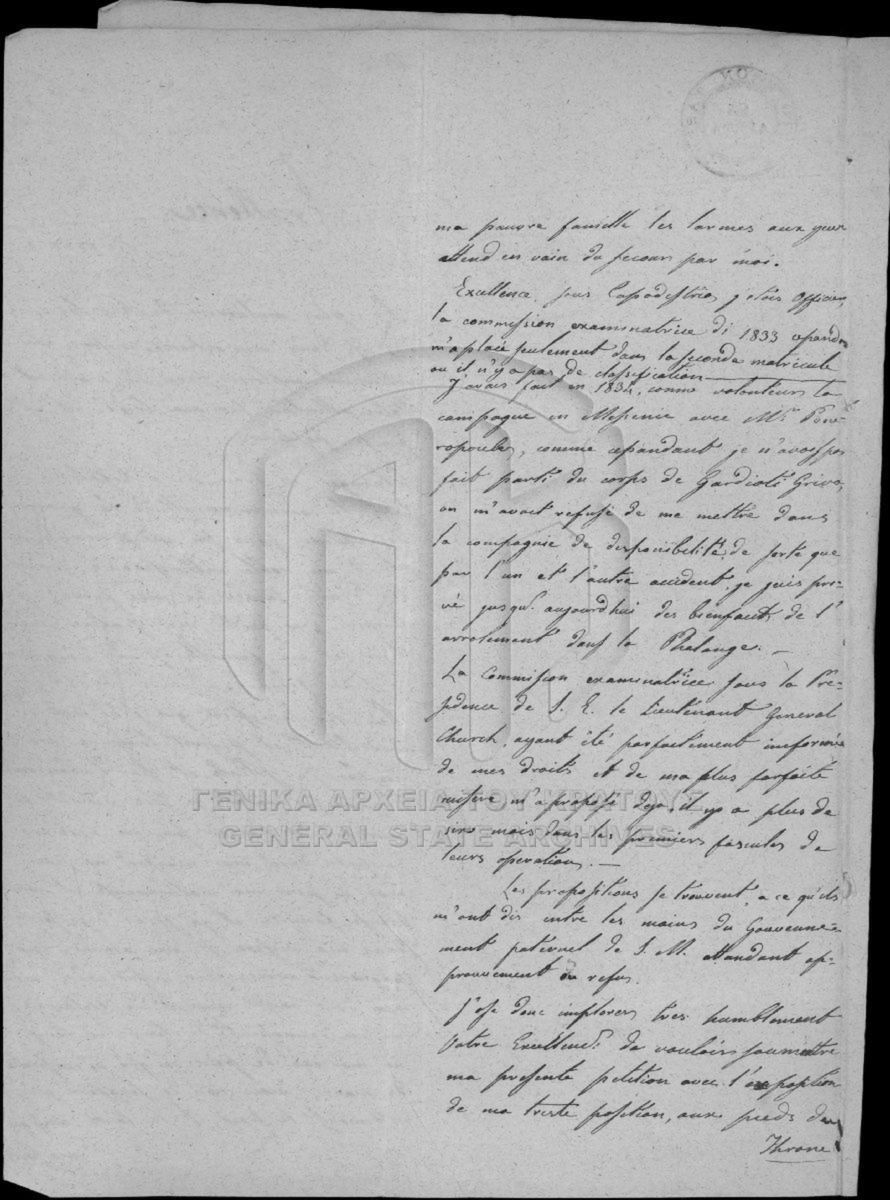 ma pauvre famille les larmes aux yeux
attend en vain du secours par moi.
Excellence, sous Capodistrias, j'etois Officier,
la commission examinatrice di 1833 cepandt
m'a placé seulement dans la seconde matricule
ou il n'y a pas de classification
J'avais fait en 1834, comme volonteur la
campagne en Messenie avec Mr.
comme cepandant je n'avoes pas
fait parti du corps de Gardioti Griva,
on m'avait refusé de me mettre dans
la compagnie de desponibilité, de sorte que
par l'un et l'autre accident, je suis pri-
vé jusqu' aujourdhui des bienfaits de l'
arrolement dans la Phalange. —
La Commission examinatrice sous la Pré-
sidence de S. E. le Lieutenant General
Church, ayant été parfaitement informée
de mes droits et de ma plus parfaite
misere m'a proposé deja, il y a plus de
six mois dans les premiers fascules de
leurs operations. —
Les propositions se trouvent, a ce qu'ils
m'ont dis entre les mains du Gouverne-
ment paternel de S. M. attandant ap-
prouvement ou refus.
J'ose donc implorer très humblement
Votre Excellence de vouloir soumettre
ma presente petition avec l'exposition
de ma triste position, aux pieds du
Throne
ΓΕΝΙΚΑ ΑΡΧΕΙΑ ΤΟΥ ΚΡΑΤΟΥΣ
GENERAL STATE ARCHIVES